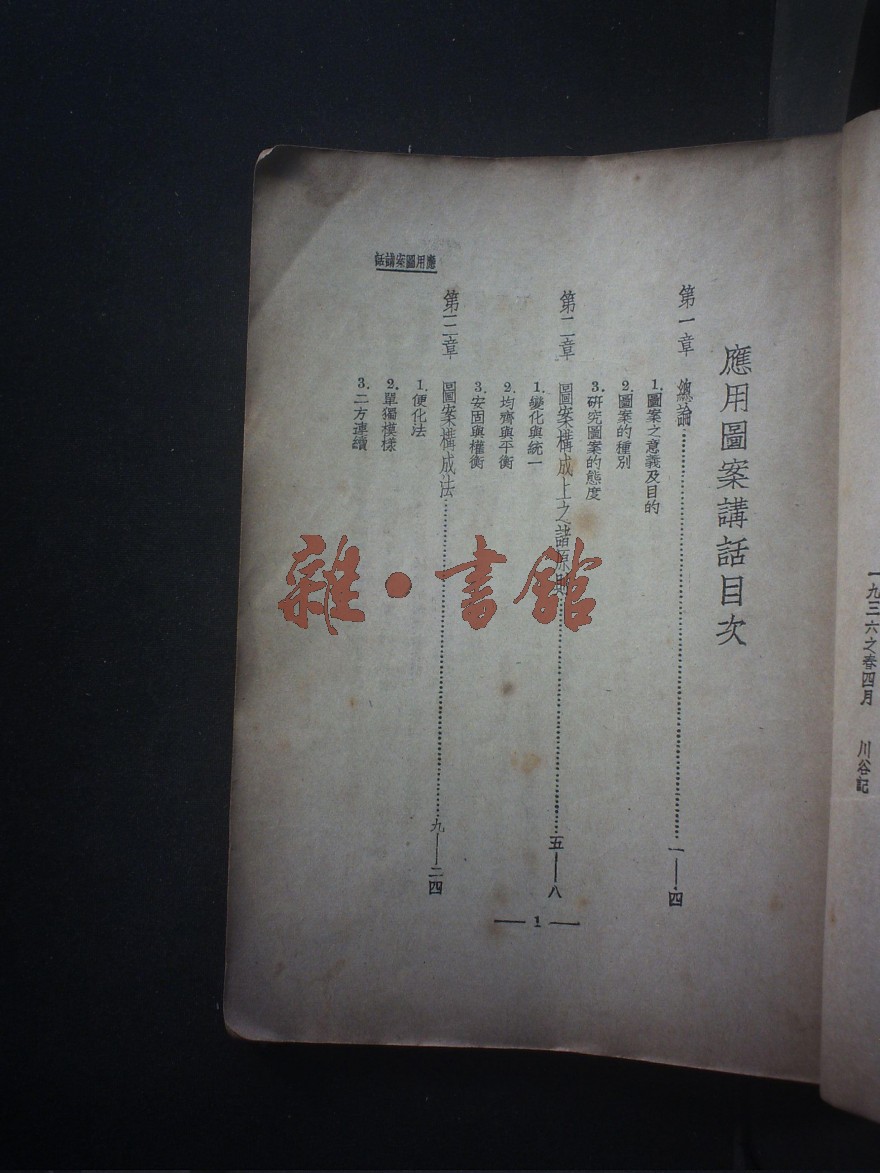 一九三六之春四月　川谷記
應用圖案講話目次
第一章　總論…………一——四
1.圖案之意義及目的
2.圖案的種別
3.研究圖案的態度
第二章　圖案構成上之諸原則…………五——八
1.變化與統一
2.均齊與平衡
3.安固與權衡
第三章　圖案構成法…………九——二四
1.便化法
2.單獨模樣
3.二方連續
應用圖案講話
—— 1 ——
雜·書館